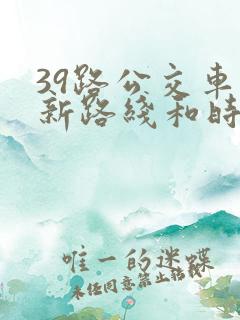 39路公交车
新路线和时
唯一的迷蝶
未经同意禁止转载